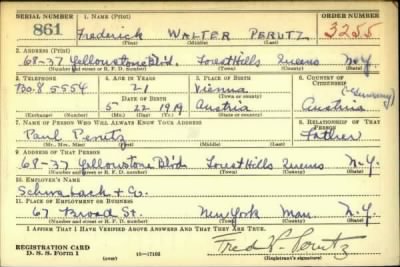 SERIAL NUMBER 1. NAME (Print) ORDER NUMBER
861 Frederick WALTER PERUTZ 3255
(First) (Middle) (Last)
2. ADDRESS (Print)
68-37 Yellowstone Blvd. Forest Hills Queens N.Y.
(Number and street or R. F. D. number) (Town) (County) (State)
3. TELEPHONE 4. AGE IN YEARS 5. PLACE OF BIRTH 6. COUNTRY OF CITIZENSHIP
Bo.8 5554 21 Vienna (Germany)
DATE OF BIRTH (Town or county)
5 22 1919 Austria Austria
(Exchange) (Number) (Mo.) (Day) (Yr.) (State or country)
7. NAME OF PERSON WHO WILL ALWAYS KNOW YOUR ADDRESS 8. RELATIONSHIP OF THAT PERSON
Paul Perutz Father
(Mr., Mrs., Miss) (First) (Middle) (Last)
9. ADDRESS OF THAT PERSON
68-37 Yellowstone Blvd Forest Hills Queens N.Y.
(Number and street or R. F. D. number) (Town) (County) (State)
10. EMPLOYER'S NAME
Schwabach & Co.
11. PLACE OF EMPLOYMENT OR BUSINESS
67 Broad St. New York Man N.Y.
(Number and street or R. F. D. number) (Town) (County) (State)
I AFFIRM THAT I HAVE VERIFIED ABOVE ANSWERS AND THAT THEY ARE TRUE.
REGISTRATION CARD
D. S. S. FORM 1 (over) 16-17105 Fred W. Perutz
(Registrant's signature)